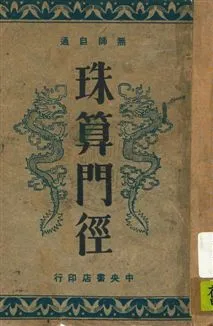 通自師無
珠算門徑
行印店書央中